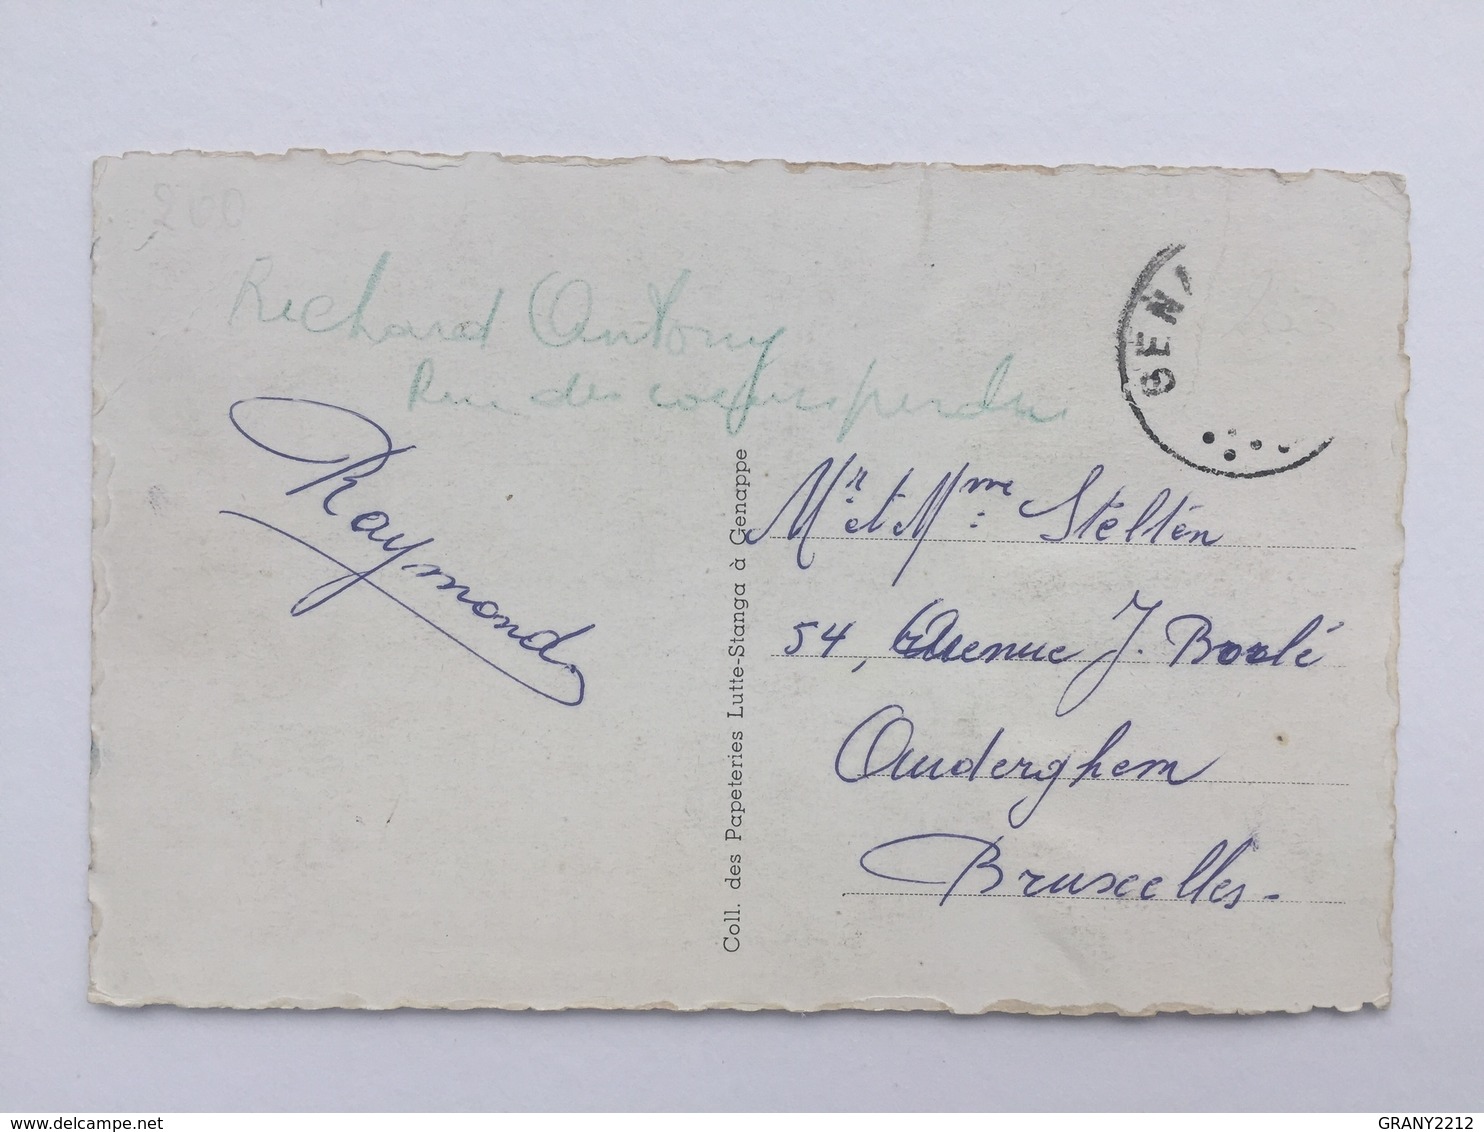 200
Richard Antony
Rue des coeurs perdus
Raymond.
GENA
200
Coll. des Papeteries Lutte-Stanga à Genappe
Mr. et Mme. Steltén
54, Avenue J. Boolé
Auderghem
Bruxelles-
www.delcampe.net
GRANY2212